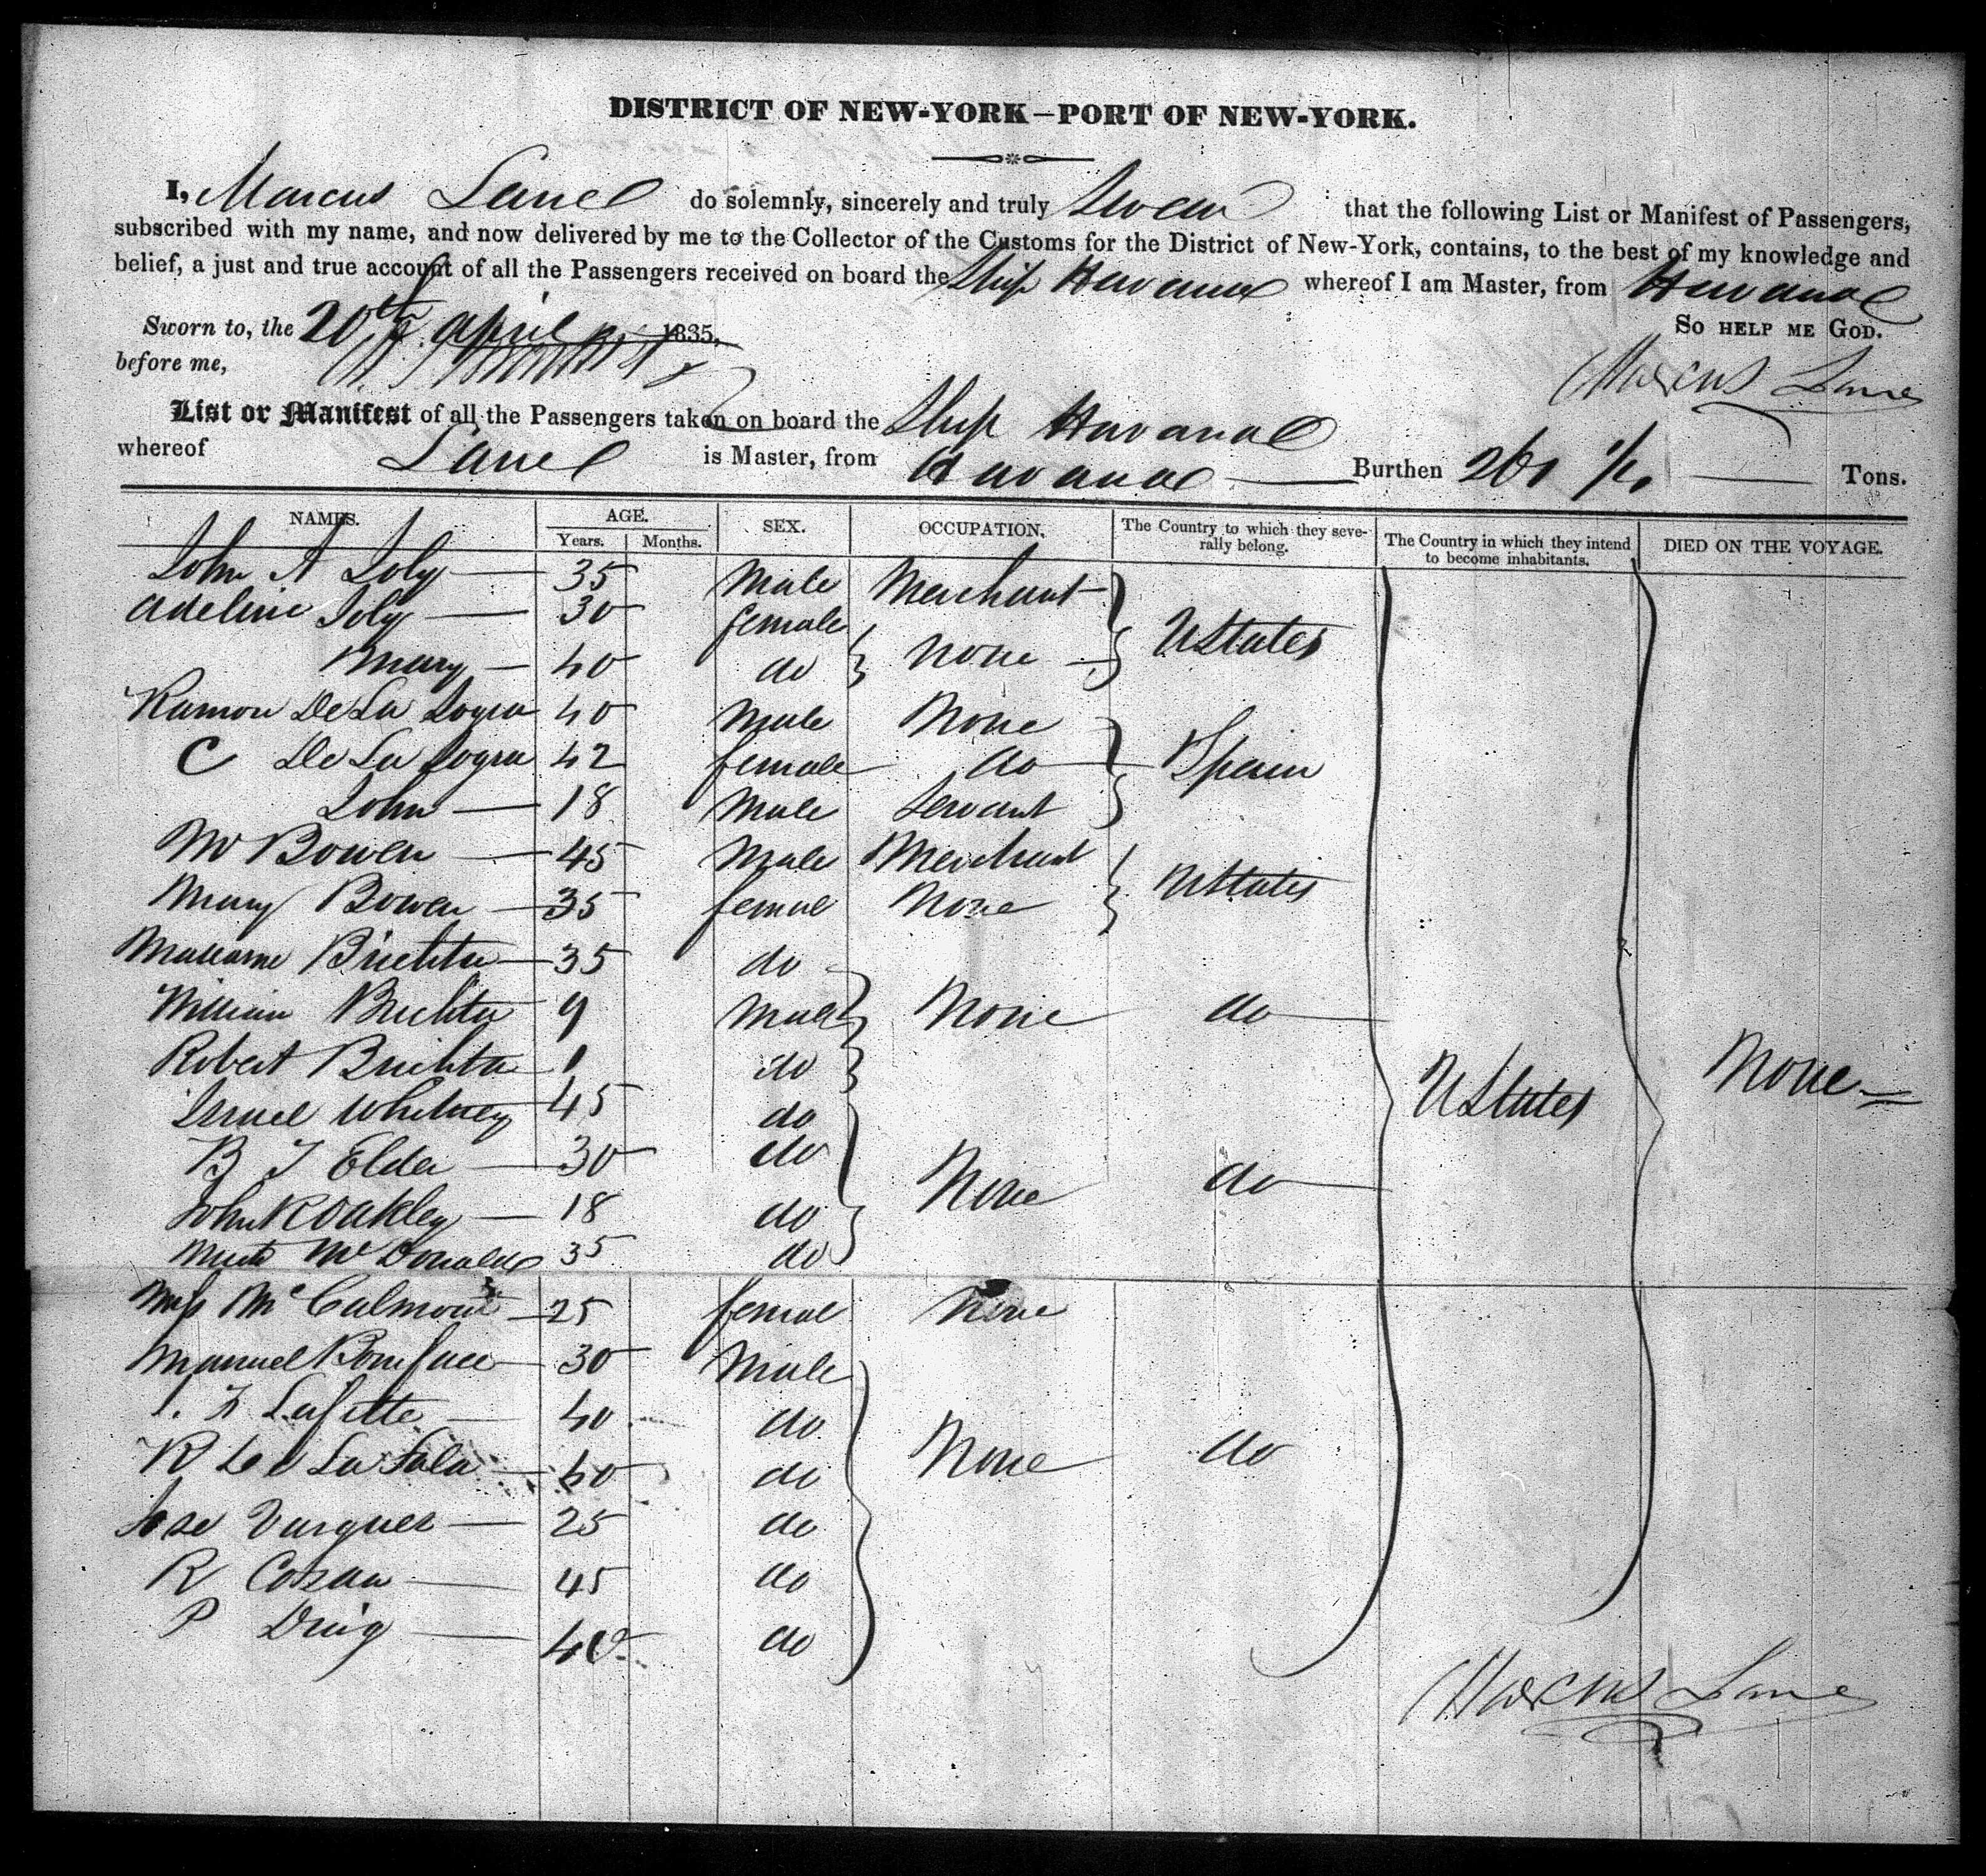 DISTRICT OF NEW-YORK—PORT OF NEW-YORK.
I, Marcus Lane do solemnly, sincerely and truly Swear that the following List or Manifest of Passengers,
subscribed with my name, and now delivered by me to the Collector of the Customs for the District of New-York, contains, to the best of my knowledge and
belief, a just and true account of all the Passengers received on board the Ship Havana whereof I am Master, from Havana
Sworn to, the 20th april 1835, So HELP ME GOD.
before me, Marcus Lane
List or Manifest of all the Passengers taken on board the Ship Havana
whereof Lane is Master, from Havana Burthen Tons.
NAMES. AGE. SEX. OCCUPATION. The Country to which they seve- The Country in which they intend DIED ON THE VOYAGE.
Years. Months. rally belong. to become inhabitants.
John A Joly 35 Male Merchant
Adeline Joly 30 female
Mary 40 do none UStates
Ramon De La Sagra 40 Male None
C De La Sagra 42 female do Spain
John 18 Male Servant
M Bowen 45 Male Merchant
Mary Bowen 35 femal None UStates
Madame Brichta 35 do
William Brichta 9 Male None do
Robert Brichta 1 do
Israel Whitney 45 do UStates None
B T Elder 30 do None do
John R Oakley 18 do
McDonald 35 do
Miss McCalmont 25 femal None
Manuel Boniface 30 Male
Lafitte 40 do
R La Sala do None do
Jose Vargues 25 do
R 45 do
P 40 do
Marcus Lane